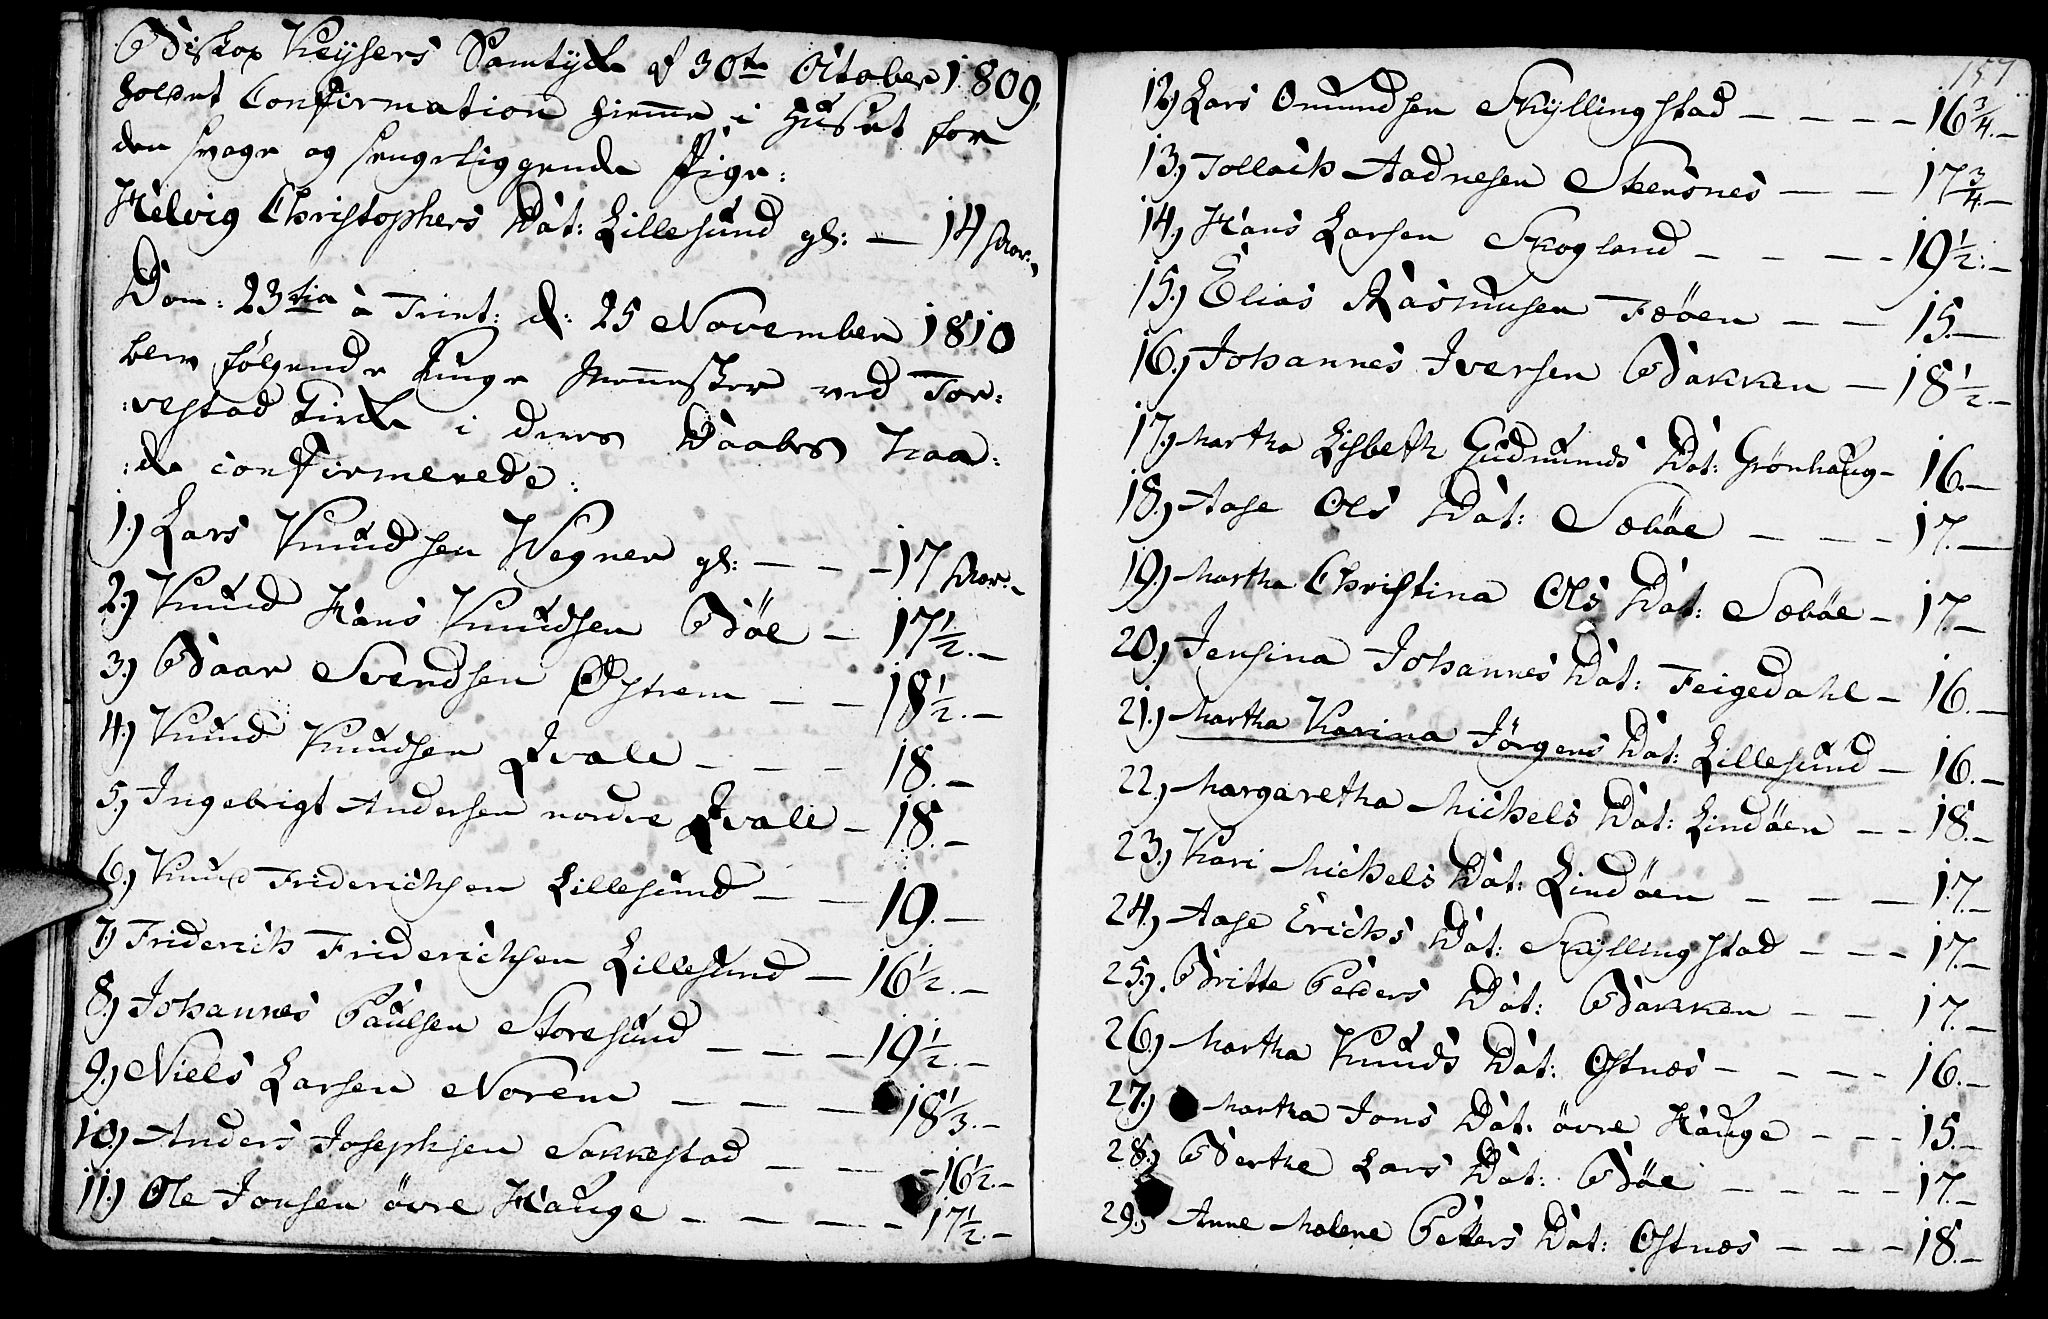 Biskop Keysers Samtykke d 30te October 1809
holdet Confirmation hiemme i Huset for
den svage og sengeliggende Pige:
Helvig Christophers Dat: Lillesund gl: — 14 Aar.
Dom: 23tia à Trint: d: 25 November 1810
blev følgende Unge Mennesker ved Tor:
:vestad Kirke i deres Daabes Naa:
:de confirmerede:
1.) Lars Knudsen Wegner gl: — — — 17 Aar.
2.) Knud Hans Knudsen Böe — 17½.—
3.) Baar Svendsen Østrem — — 18½.—
4.) Knud Knudsen Qvale — — — 18.—
5.) Ingebrigt Andersen nordre Qvale — 18.—
6.) Knud Friderichsen Lillesund — — 19.—
7.) Friderich Friderichsen Lillesund — 16½.—
8.) Johannes Paulsen Storesund — — — 19½.—
9.) Niels Larsen Norem — — — 18⅓.—
10.) Anders Josephsen Sakkestad — — — 16½.—
11.) Ole Jonsen övre Hauge — — — — 17½.—
157.
12.) Lars Omundsen Skyllingstad — — — — 16¾.—
13.) Tollach Aadnesen Steensnes — — 17¾—
14.) Hans Larsen Skogland — — — — 19½.—
15.) Elias Rasmusen Feöen — — 15.—
16.) Johannes Iversen Bakken — 18½.—
17.) Martha Lisbeth Gudmunds Dat: Grönhaug — 16.—
18.) Aase Ols Dat: Sæböe — — — — 17.—
19.) Martha Christina Ols Dat: Sæböe — 17.—
20.) Jensina Johannes Dat: Feigedahl — 16.—
21.) Martha Karina Jörgens Dat: Lillesund — 16.—
22.) Margaretha Michels Dat: Lindöen — — 18.—
23.) Kari Michels Dat: Lindöen — — — 17.—
24.) Aase Erichs Dat: Skyllingstad — — — 17.—
25.) Britte Peders Dat: Bakken — — 17.—
26.) Martha Knuds Dat: Ostnæs — — — — 16.—
27.) Martha Jons Dat: övre Hauge — — — 15.—
28.) Berthe Lars Dat: Böe — — — — 17.—
29.) Anne Malene Petters Dat: Ostnæs — — — 18.—